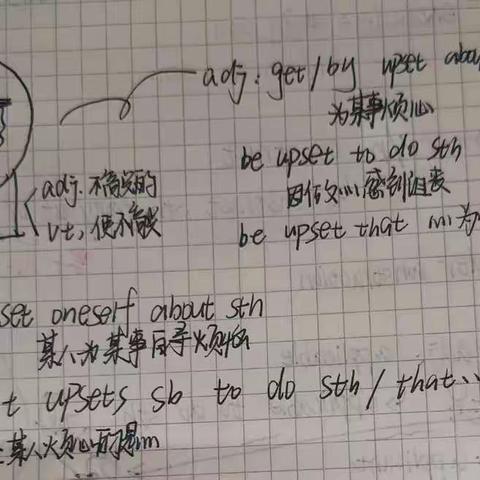 adj: get / by upset abou
为某事烦心
be upset to do sth
adj. 不高兴的
因做 感到沮丧
vt, 使不高兴
be upset that 为
set oneself about sth
某人为某事自寻烦恼
t upsets sb to do sth / that...
某人烦心